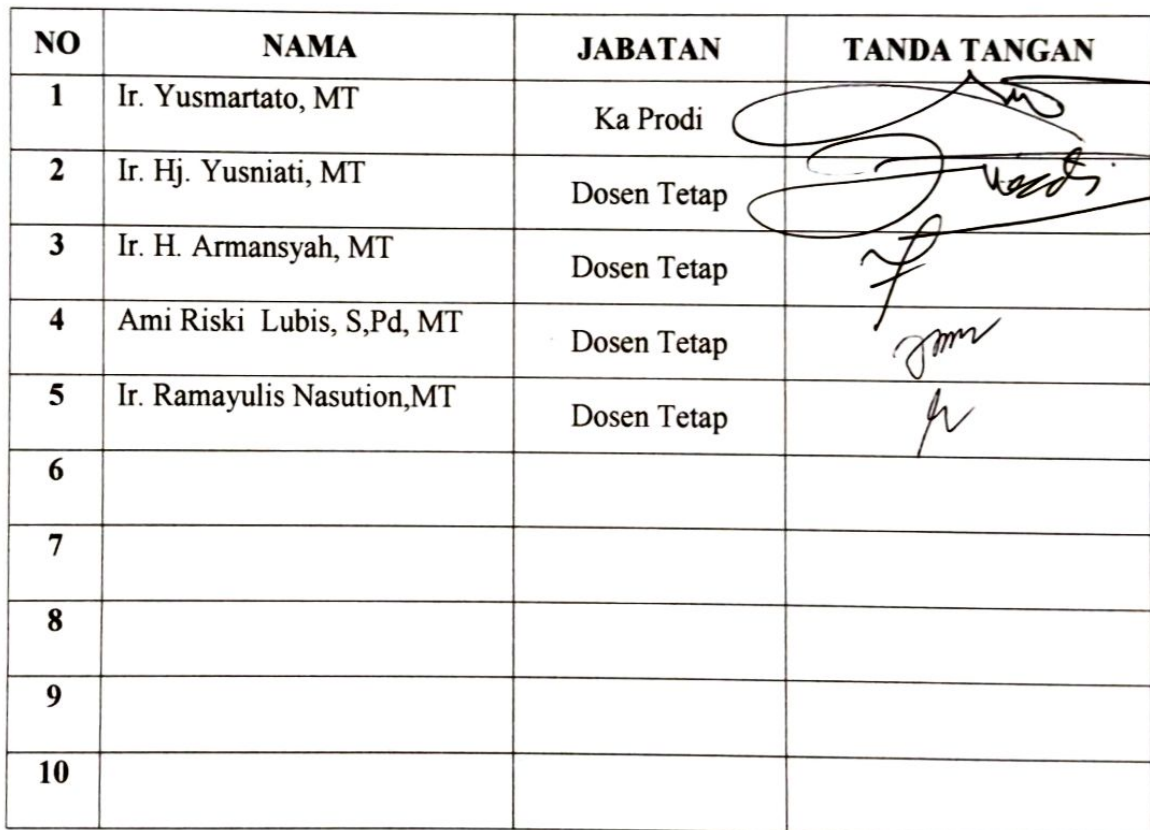 NO NAMA JABATAN TANDA TANGAN
1 Ir. Yusmartato, MT Ka Prodi
2 Ir. Hj. Yusniati, MT Dosen Tetap
3 Ir. H. Armansyah, MT Dosen Tetap
4 Ami Riski Lubis, S,Pd, MT Dosen Tetap
5 Ir. Ramayulis Nasution,MT Dosen Tetap
6
7
8
9
10